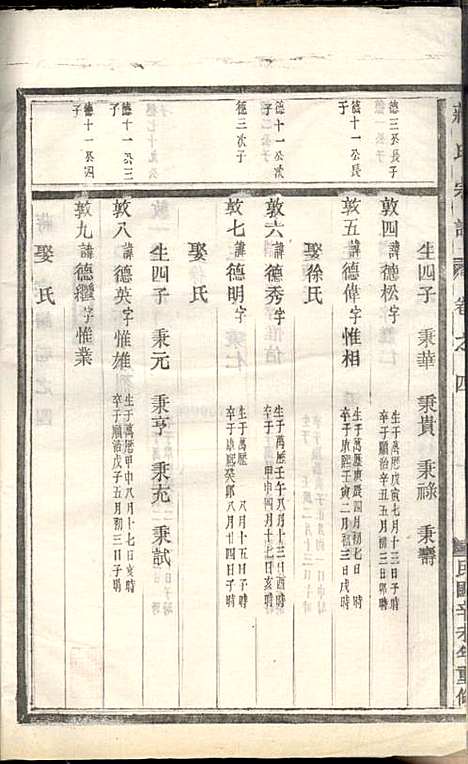 氏宗譜 卷之四 民國辛未年重修
生四子 秉華 秉貴 秉祿 秉壽
德三公長子
敦四 諱德松 字惟
生于萬歷戊寅七月十三日子時
卒于順治辛丑五月初三日卯時
德十一公長子
敦五 諱德偉 字惟相
生于萬歷庚辰四月初七日
卒于康熙壬寅二月初三日戌時
娶徐氏
德十一公次子
敦六 諱德秀 字惟
生于萬歷壬午八月十三日酉時
卒于 甲申四月十七日子時
德三次子
敦七 諱德明 字
生于萬歷 八月十五日子時
卒于康熙癸卯八月廿四日子時
娶 氏
生四子 秉元 秉亨 秉充 秉試
德十一公三子
敦八 諱德英 字惟雄
生于萬歷甲申八月十七日亥時
卒于順治戊子五月初三日子時
德十一公四子
敦九 諱德繼 字惟業
娶 氏